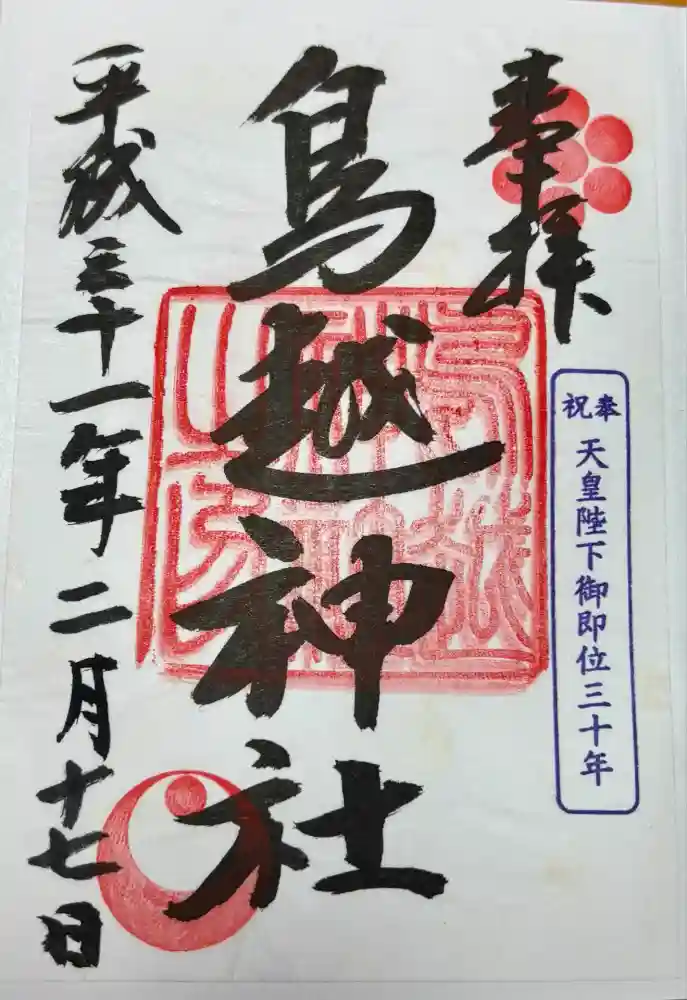 奉拝
奉祝
天皇陛下御即位三十年
鳥越神社
平成三十一年二月十七日